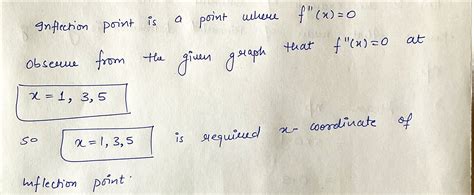 Inflection point is a point where f"(x)=0
Observe from the given graph that f"(x)=0 at
x = 1, 3, 5
so x = 1,3,5 is required x- coordinate of
inflection point.